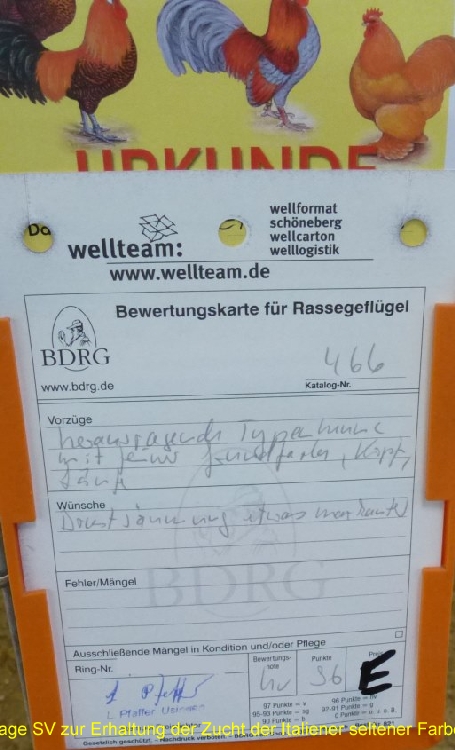 URKUNDE
Do
wellteam:
wellformat
schöneberg
wellcarton
welllogistik
www.wellteam.de
Bewertungskarte für Rassegeflügel
BDRG
www.bdrg.de
466
Katalog-Nr.
Vorzüge
hervorragende Typenhenne
mit feiner Grundfarbe, Kopf,
Läufe
Wünsche
Brustsäumung etwas markanter
Fehler/Mängel
BDRG
Ausschließende Mängel in Kondition und/oder Pflege
Ring-Nr.
Bewertungs-
note
Punkte
Preis
hv
96
E
L. Pfaffer
97 Punkte = v
96 Punkte = hv
95-93 Punkte = sg
92-91 Punkte = g
90 Punkte = b
Gesetzlich geschützt. – Nachdruck verboten. –
age SV zur Erhaltung der Zucht der Italiener seltener Farbe